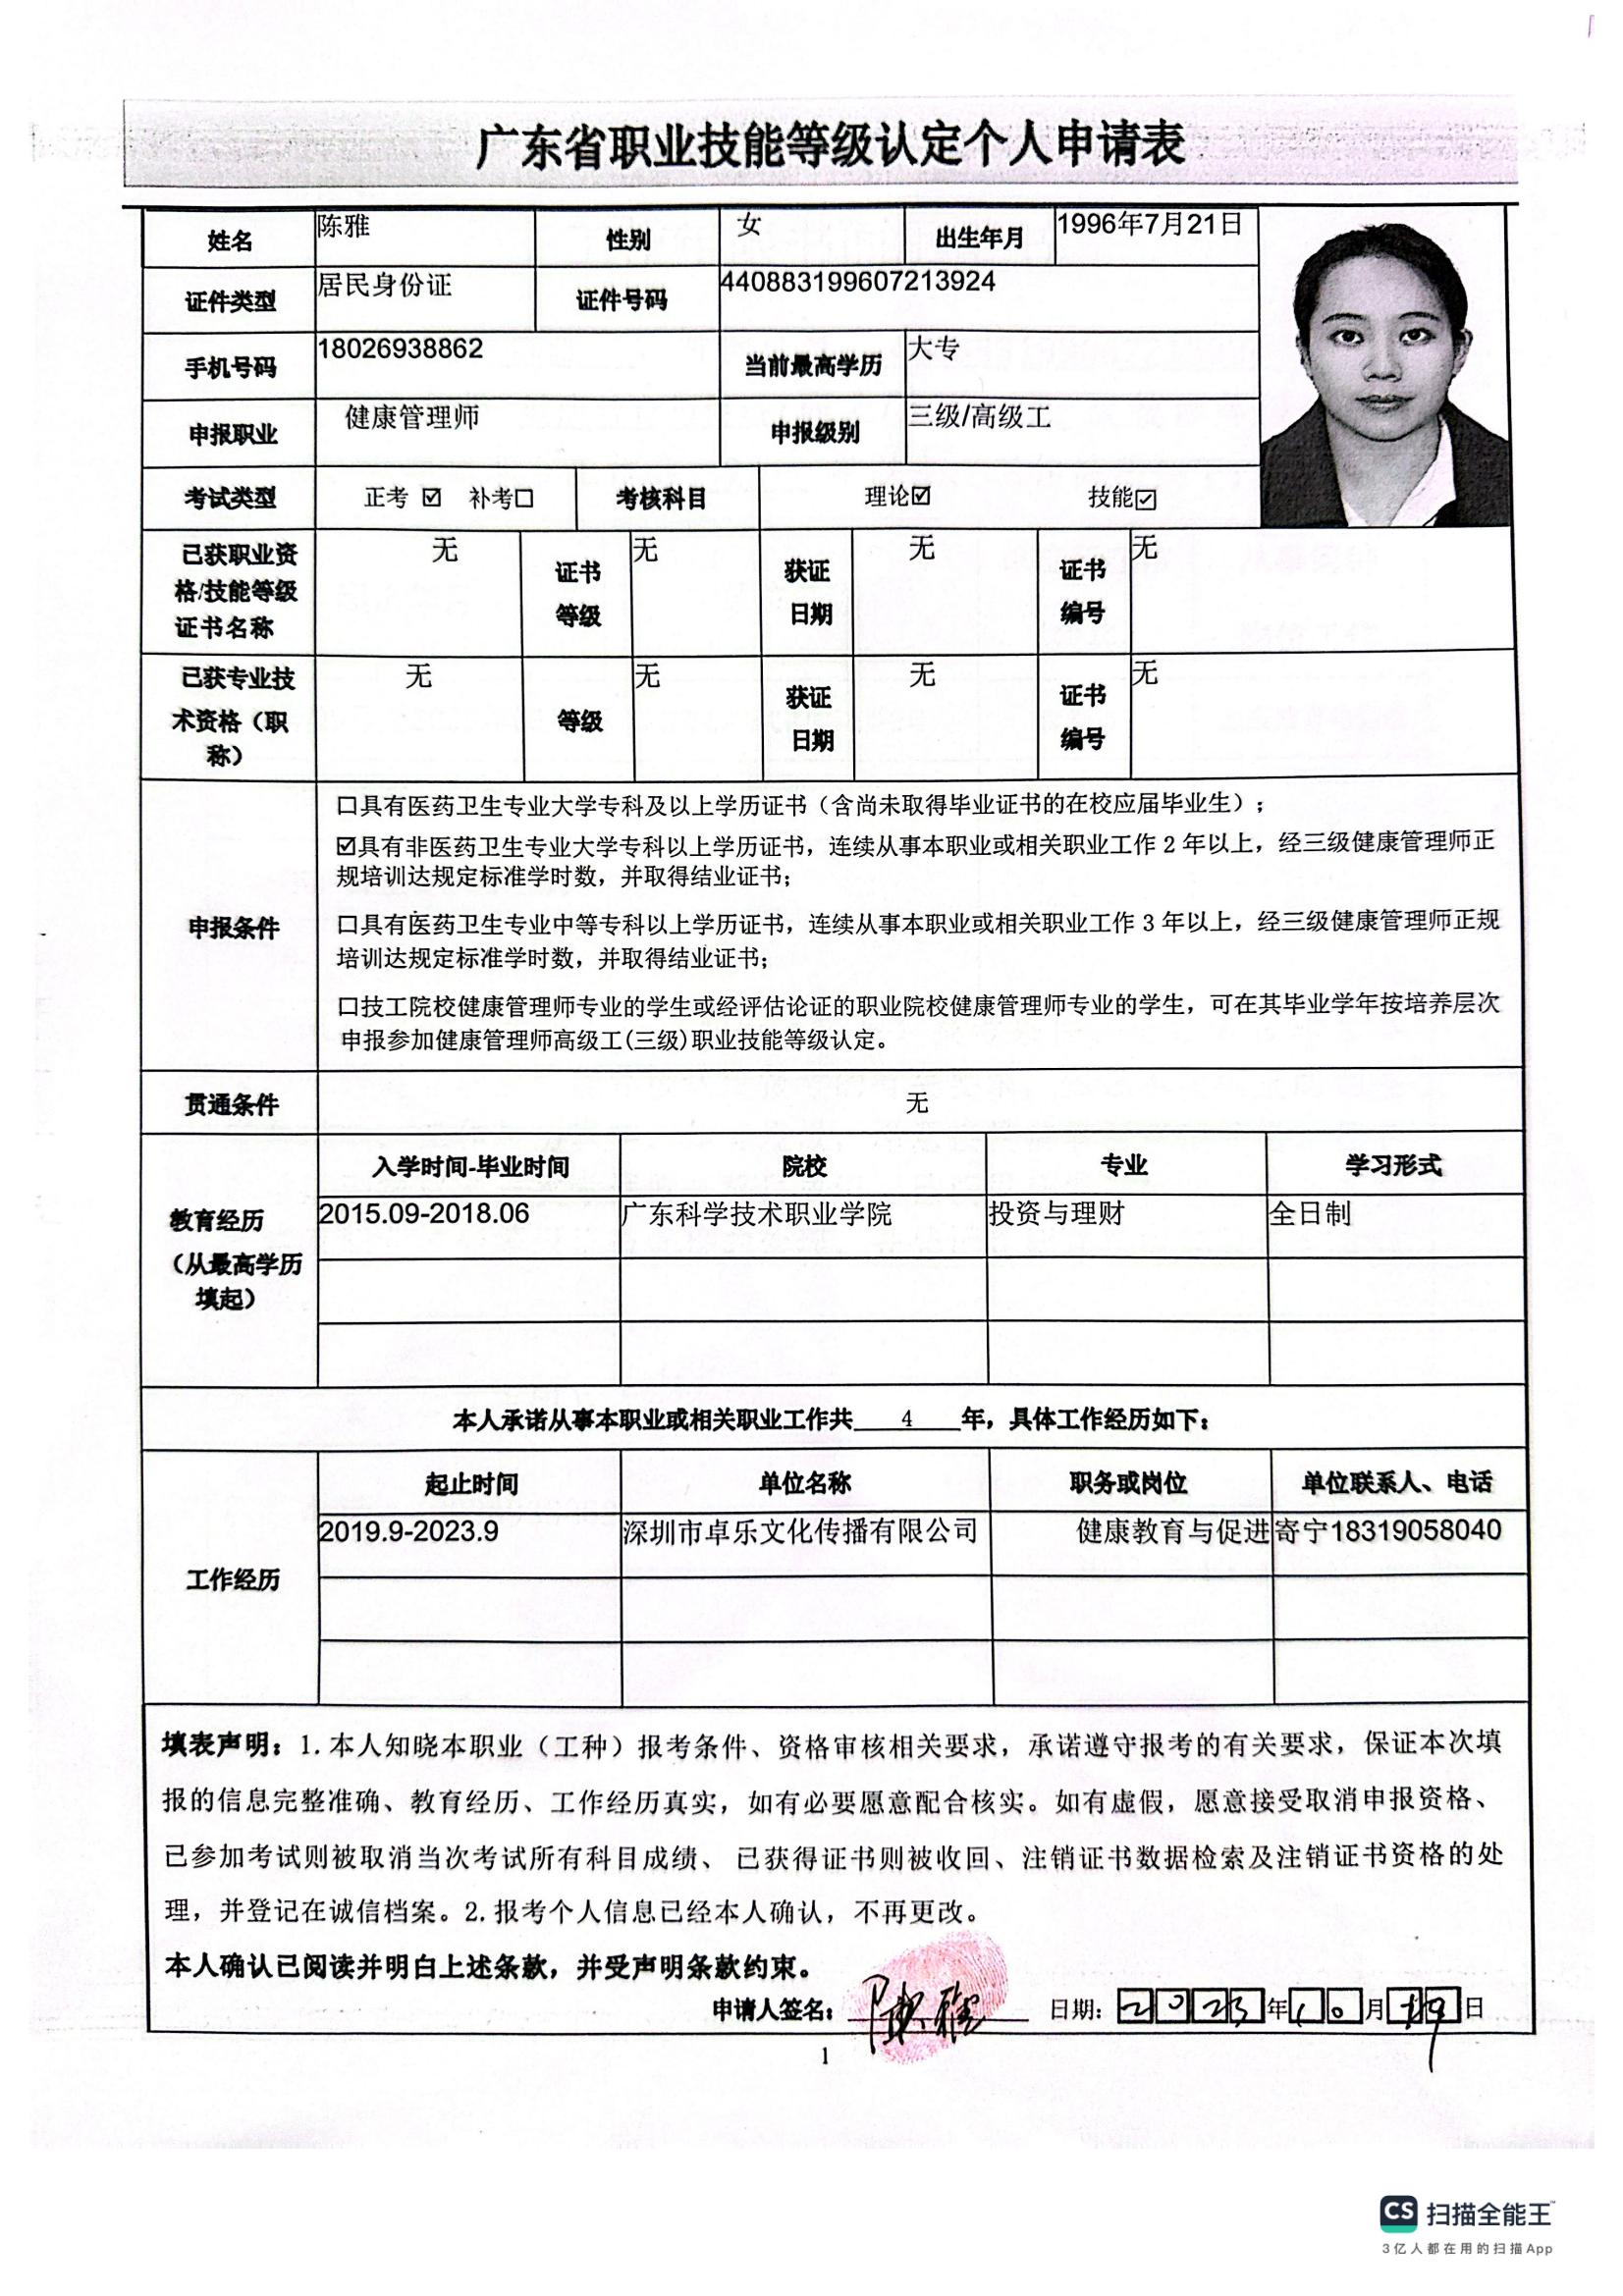 广东省职业技能等级认定个人申请表
姓名 陈雅 性别 女 出生年月 1996年7月21日
证件类型 居民身份证 证件号码 440883199607213924
手机号码 18026938862 当前最高学历 大专
申报职业 健康管理师 申报级别 三级/高级工
考试类型 正考 ☑ 补考□ 考核科目 理论☑ 技能☑
已获职业资格/技能等级证书名称 无 证书等级 无 获证日期 无 证书编号 无
已获专业技术资格（职称） 无 等级 无 获证日期 无 证书编号 无
申报条件
□具有医药卫生专业大学专科及以上学历证书（含尚未取得毕业证书的在校应届毕业生）；
☑具有非医药卫生专业大学专科以上学历证书，连续从事本职业或相关职业工作 2 年以上，经三级健康管理师正
规培训达规定标准学时数，并取得结业证书；
□具有医药卫生专业中等专科以上学历证书，连续从事本职业或相关职业工作 3 年以上，经三级健康管理师正规
培训达规定标准学时数，并取得结业证书；
□技工院校健康管理师专业的学生或经评估论证的职业院校健康管理师专业的学生，可在其毕业学年按培养层次
申报参加健康管理师高级工(三级)职业技能等级认定。
贯通条件 无
教育经历（从最高学历填起）
入学时间-毕业时间 院校 专业 学习形式
2015.09-2018.06 广东科学技术职业学院 投资与理财 全日制
本人承诺从事本职业或相关职业工作共 4 年，具体工作经历如下：
工作经历
起止时间 单位名称 职务或岗位 单位联系人、电话
2019.9-2023.9 深圳市卓乐文化传播有限公司 健康教育与促进 寄宁18319058040
填表声明：1.本人知晓本职业（工种）报考条件、资格审核相关要求，承诺遵守报考的有关要求，保证本次填
报的信息完整准确、教育经历、工作经历真实，如有必要愿意配合核实。如有虚假，愿意接受取消申报资格、
已参加考试则被取消当次考试所有科目成绩、 已获得证书则被收回、注销证书数据检索及注销证书资格的处
理，并登记在诚信档案。2.报考个人信息已经本人确认，不再更改。
本人确认已阅读并明白上述条款，并受声明条款约束。
申请人签名： 陈雅 日期： 2023年10月19日
1
CS 扫描全能王
3亿人都在用的扫描App